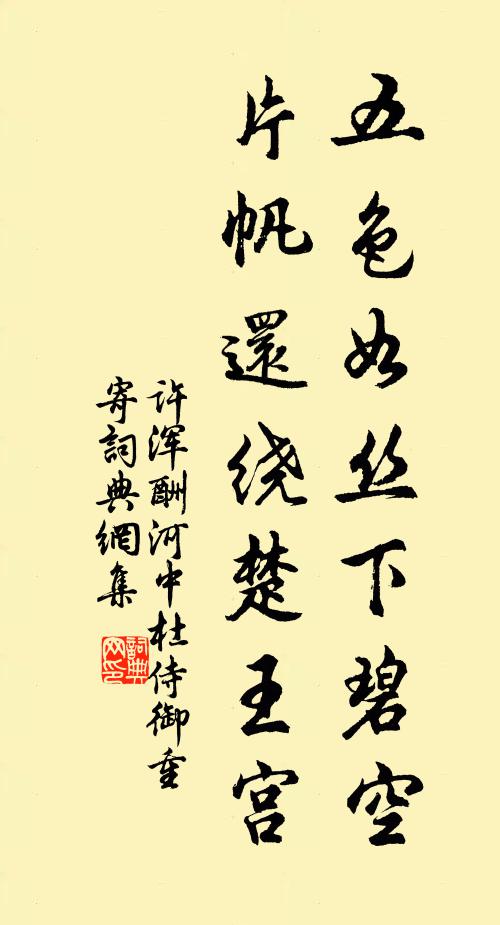 五色如丝下碧空
片帆還绕楚王宫
许浑酬河中杜侍御重
寄詞典網集
詞典
网印